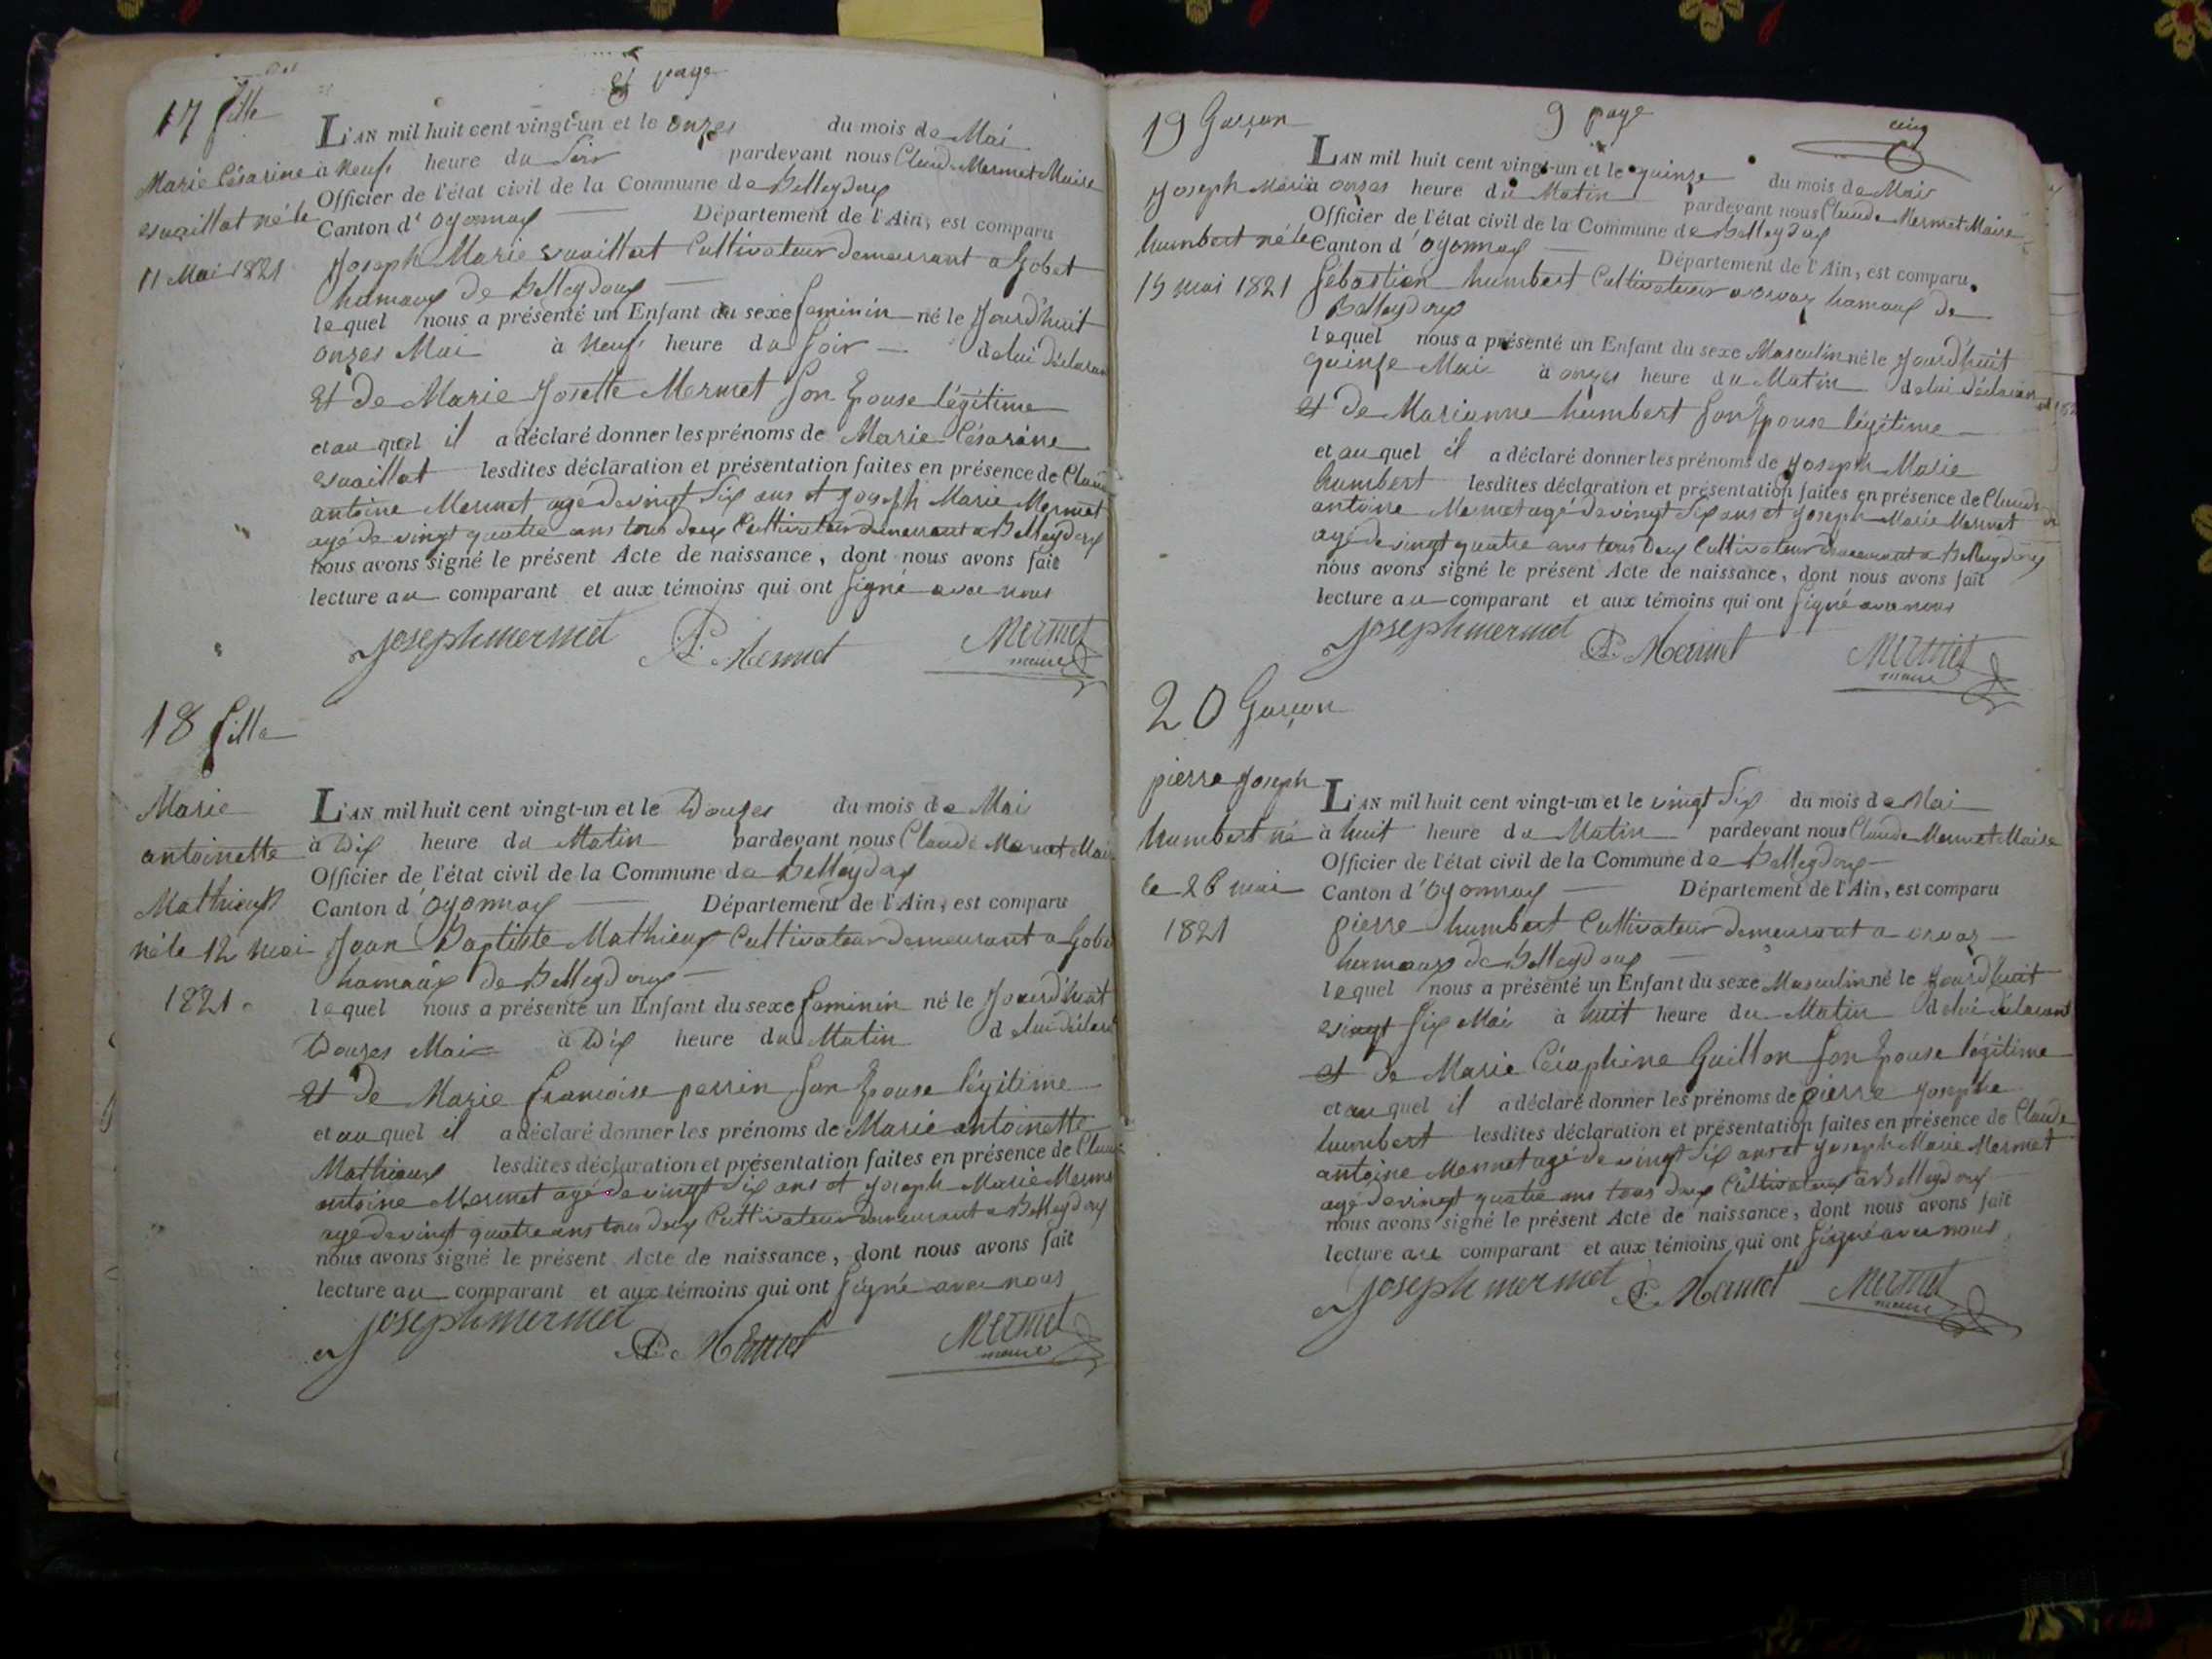 8 page
17 fille
Marie Césarine
Vuaillat né le
11 Mai 1821
L'AN mil huit cent vingt-un et le onzes du mois de Mai
à Neufs heure du Soir pardevant nous Claude Mermet Maire
Officier de l'état civil de la Commune de Belleydoux
Canton d'Oyonnax Département de l'Ain, est comparu
Joseph Marie Vuaillat Cultivateur demeurant a Gobet
hamaux de Belleydoux
lequel nous a présenté un Enfant du sexe feminin né le Jourd'huit
onzes Mai à Neufs heure du Soir de lui déclarant
Et de Marie Josette Mermet Son Epouse légitime
et au quel il a déclaré donner les prénoms de Marie Césarine
Vuaillat lesdites déclaration et présentation faites en présence de Claude
antoine Mermet agé de vingt Six ans et Joseph Marie Mermet
agé de vingt quatre ans tous deux Cultivateur demeurant a Belleydoux
nous avons signé le présent Acte de naissance, dont nous avons fait
lecture au comparant et aux témoins qui ont Signé avec nous
Joseph mermet Mermet Mermet
maire
18 fille
Marie
antoinette
Mathieux
né le 12 mai
1821
L'AN mil huit cent vingt-un et le Douzes du mois de Mai
à Dix heure du Matin pardevant nous Claude Mermet Maire
Officier de l'état civil de la Commune de Belleydox
Canton d'Oyonnax Département de l'Ain, est comparu
Jean Baptiste Mathieux Cultivateur demeurant a Gobet
hamaux de Belleydoux
lequel nous a présenté un Enfant du sexe feminin né le Jourd'huit
Douzes Mai à Dix heure du Matin de lui déclarant
Et de Marie francoise perrin Son Epouse légitime
et au quel il a déclaré donner les prénoms de Marie antoinette
Mathieux lesdites déclaration et présentation faites en présence de Claude
antoine Mermet agé de vingt Six ans et Joseph Marie Mermet
agé de vingt quatre ans tous deux Cultivateur demeurant a Belleydoux
nous avons signé le présent Acte de naissance, dont nous avons fait
lecture au comparant et aux témoins qui ont Signé avec nous
Joseph mermet Mermet Mermet
maire
9 page
cinq
19 Garçon
Joseph Marie
humbert né le
15 mai 1821
L'AN mil huit cent vingt-un et le quinze du mois de Mai
à onzes heure du Matin pardevant nous Claude Mermet Maire
Officier de l'état civil de la Commune de Belleydox
Canton d'Oyonnax Département de l'Ain, est comparu
Sébastien humbert Cultivateur a orvaz hamaux de
Belleydoux
lequel nous a présenté un Enfant du sexe Masculin né le Jourd'huit
quinze Mai à onzes heure du Matin de lui déclarant
et de Marianne humbert Son Epouse légitime
et au quel il a déclaré donner les prénoms de Joseph Marie
humbert lesdites déclaration et présentation faites en présence de Claude
antoine Mermet agé de vingt Six ans et Joseph Marie Mermet
agé de vingt quatre ans tous deux Cultivateur demeurant a Belleydoux
nous avons signé le présent Acte de naissance, dont nous avons fait
lecture au comparant et aux témoins qui ont Signé avec nous
Joseph mermet Mermet Mermet
maire
20 Garçon
pierre Joseph
humbert né
le 26 mai
1821
L'AN mil huit cent vingt-un et le vingt Six du mois de Mai
à huit heure du Matin pardevant nous Claude Mermet Maire
Officier de l'état civil de la Commune de Belleydoux
Canton d'Oyonnax Département de l'Ain, est comparu
pierre humbert Cultivateur demeurant a orvaz
hamaux de Belleydoux
lequel nous a présenté un Enfant du sexe Masculin né le Jourd'huit
vingt Six Mai à huit heure du Matin de lui déclarant
et de Marie Céraphine Guillon Son Epouse légitime
et au quel il a déclaré donner les prénoms de pierre Josephe
humbert lesdites déclaration et présentation faites en présence de Claude
antoine Mermet agé de vingt Six ans et Joseph Marie Mermet
agé de vingt quatre ans tous deux Cultivateur a Belleydoux
nous avons signé le présent Acte de naissance, dont nous avons fait
lecture au comparant et aux témoins qui ont Signé avec nous
Joseph mermet Mermet Mermet
maire